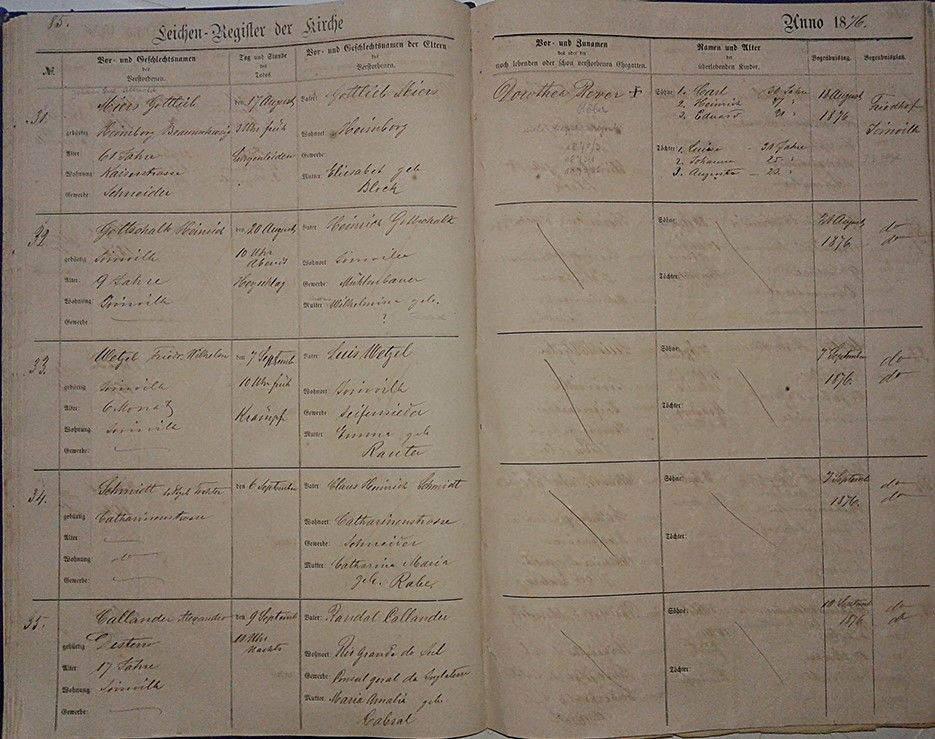 85.
Leichen-Register der Kirche
Anno 1876.
№
Vor- und Geschlechtsnamen
der
Verstorbenen.
Tag und Stunde
des
Todes
Vor- und Geschlechtsnamen der Eltern
des
Verstorbenen.
Vor- und Zunamen
des oder der
noch lebenden oder schon verstorbenen Ehegatten.
Namen und Alter
der
überlebenden Kinder.
Begräbnißtag.
Begräbnißplatz.
31.
Gottlieb
gebürtig
Heimborg Braunschweig
Alter:
61 Jahre
Wohnung
Kaiserstrasse
Gewerbe:
Schneider
den 17 August
3 Uhr früh
Vater:
Gottlieb
Wohnort
Heimborg
Gewerbe:
Mutter:
Elisabet geb
Block
Dorothea
Söhne:
1. Carl 30 Jahre
2. Heinrich 27 "
3. Eduard
Töchter:
1. Luise - 30 Jahre
2. Johanna 25 "
3. Auguste - 23 "
18 August
1876
Friedhof
Joinville
32
Gottschalk Heinrich
gebürtig
Joinville
Alter:
9 Jahre
Wohnung
Joinville
Gewerbe:
den 20 August
10 Uhr
Abends
Herzschlag
Vater
Heinrich Gottschalk
Wohnort
Joinville
Gewerbe:
Mühlenbauer
Mutter
Wilhelmine geb.
?
Söhne:
Töchter:
August
1876
do
do
33.
Wetzel Friedr. Wilhelm
gebürtig
Joinville
Alter
6 Monat
Wohnung
Joinville
Gewerbe:
den 7 Septemb
10 Uhr früh
Krämpf
Vater:
Luis Wetzel
Wohnort:
Joinville
Gewerbe
Seifensieder
Mutter
Emma geb
Rauter
Söhne:
Töchter:
7 September
1876.
do
do
34.
Schmidt
gebürtig
Catharinenstrasse
Alter
Wohnung
do
Gewerbe:
den 6 September
Vater:
Claus Heinrich Schmidt
Wohnort
Catharinenstrasse
Gewerbe:
Schneider
Mutter:
Catharina Maria
geb. Rabe
Söhne:
Töchter:
7 Septemb
1876.
do
do
35.
Callander Alexander
gebürtig
Desterro
Alter:
17 Jahre
Wohnung:
Joinville
Gewerbe:
den 9 Septemb
11 Uhr
Nachts
Vater:
Randal Callander
Wohnort:
Rio Grande do Sul
Gewerbe
Consul geral da Inglaterra
Mutter:
Maria Amalia geb
Cabral
Söhne:
Töchter:
10 Septemb
1876.
do
do